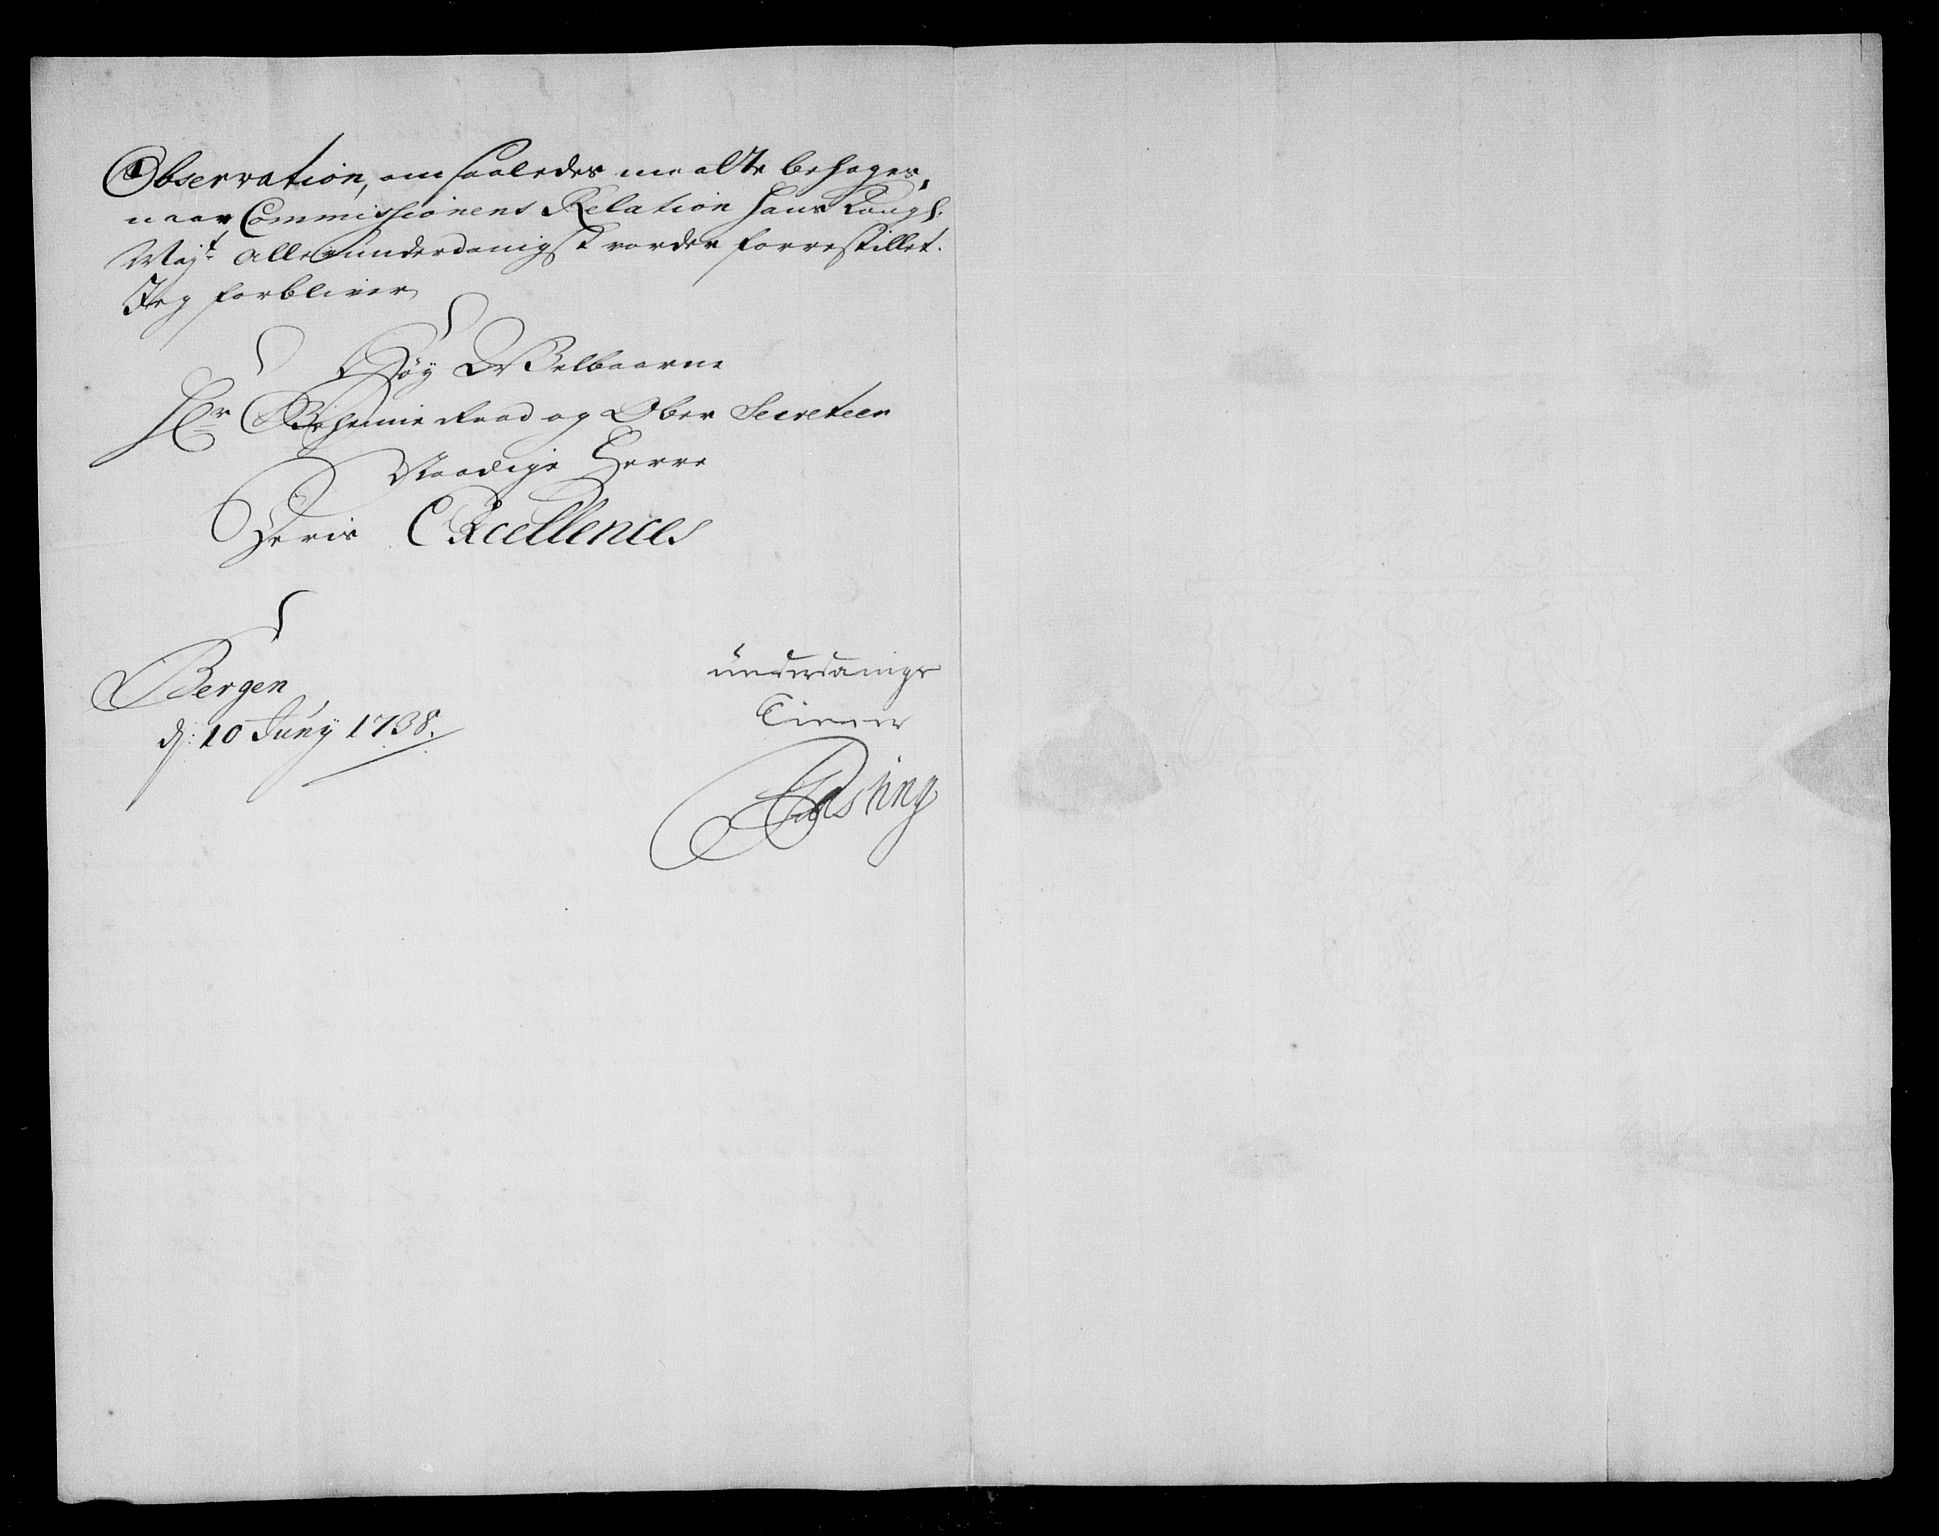 Observation, om saaledes maatte behages,
naar Commissionens Relation hans Kongl:
Mayt: allerunderdanigst vorder forrestillet.
Jeg forbliver
Høy Velbaarne
Hr Geheime Raad og Ober Secreteer
Naadige Herre
Deris Excellences
Bergen
d: 10 Juny 1738.
underdanige
Tiener